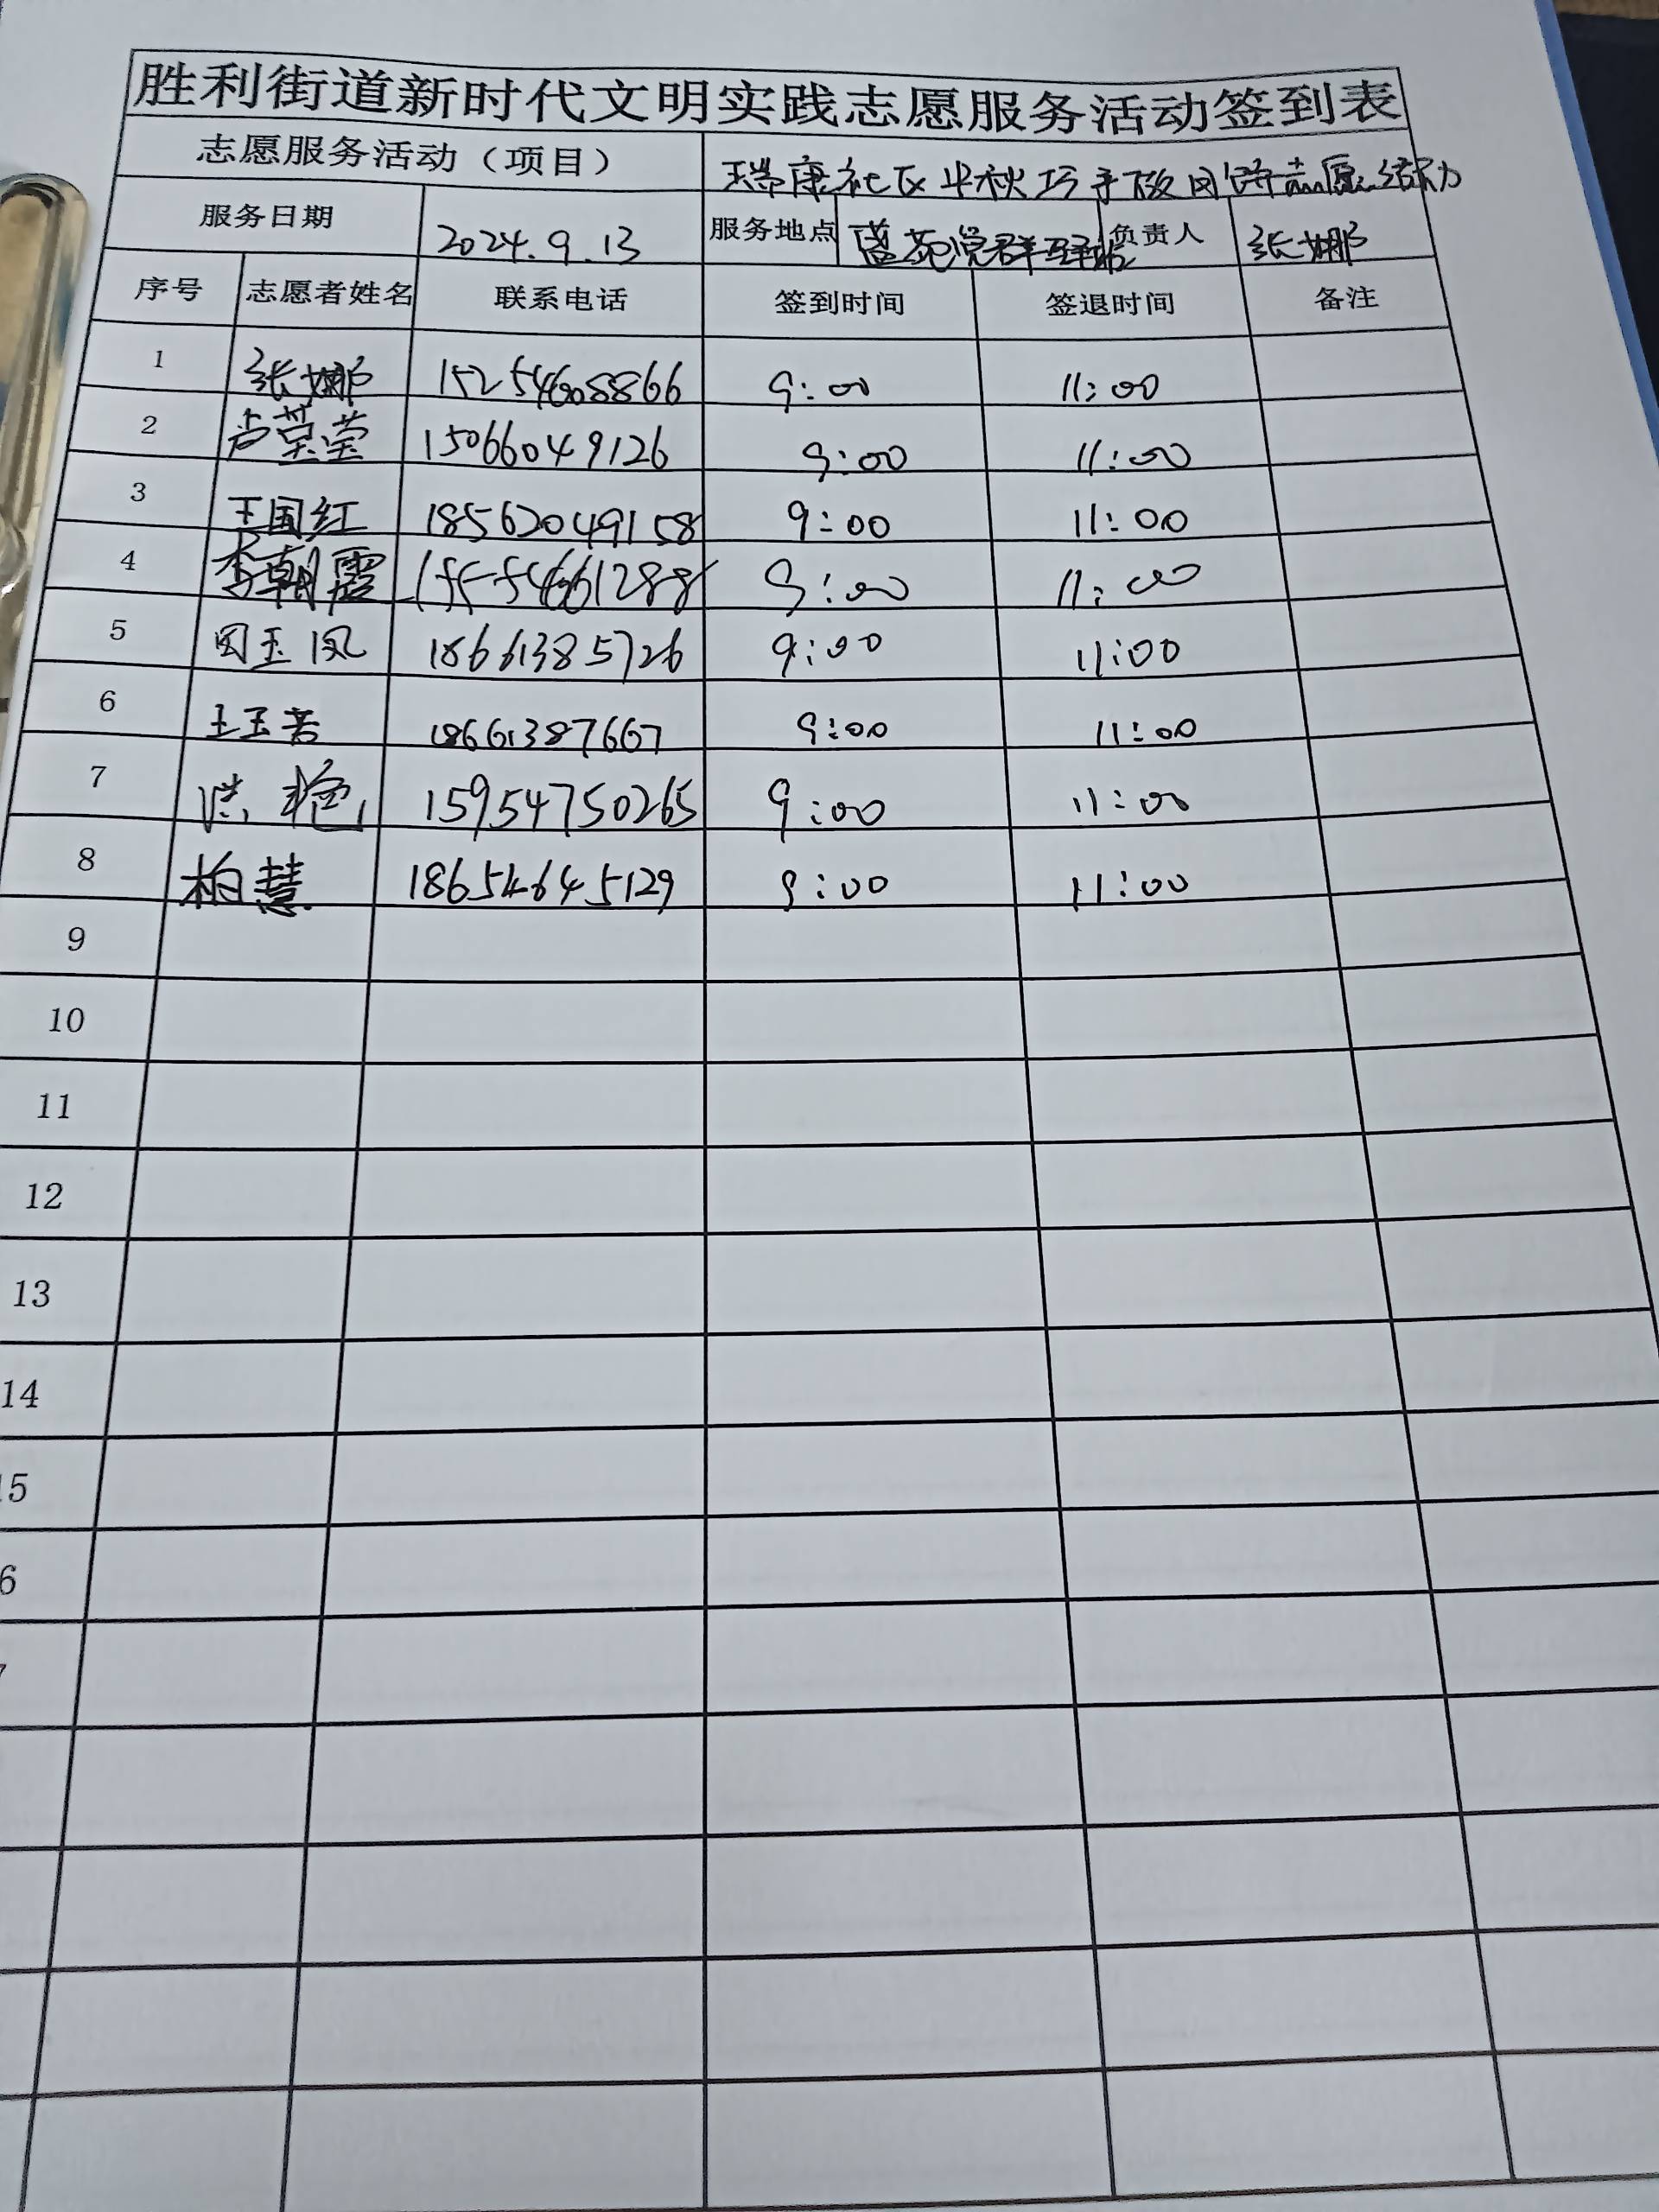 胜利街道新时代文明实践志愿服务活动签到表
志愿服务活动（项目） 瑞康社区中秋巧手做团饼志愿活动
服务日期 2024.9.13 服务地点 蓝苑党群驿站 负责人 张娜
序号 志愿者姓名 联系电话 签到时间 签退时间 备注
1 张娜 15254608866 9:00 11:00
2 卢莹莹 15066049126 9:00 11:00
3 王国红 18562049158 9:00 11:00
4 李朝霞 9:00 11:00
5 周玉凤 18661385726 9:00 11:00
6 王玉芳 18661387667 9:00 11:00
7 洪艳 15954750265 9:00 11:00
8 柏慧 18654645129 9:00 11:00
9
10
11
12
13
14
15
6
7